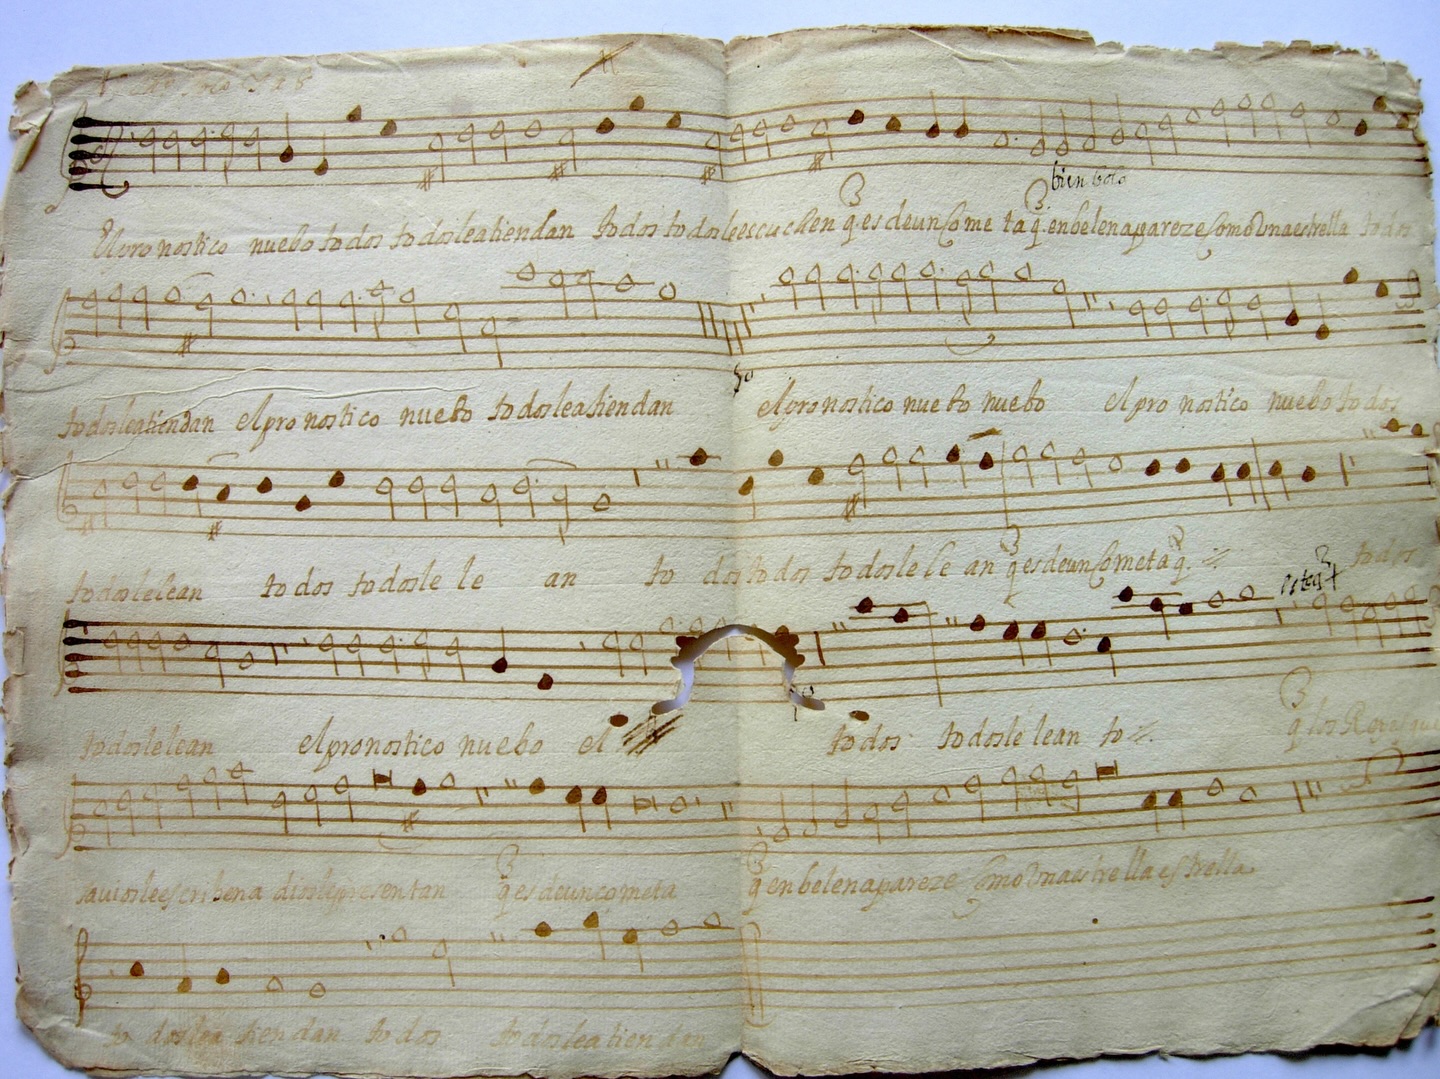 El pro nostico nuebo todos todos le atiendan todos todos le escuchen q. es de un Come ta q. en belen apareze Como Una estrella todos
bien bolo
todos le atiendan el pro nostico nuebo todos le atiendan el pro nostico nuebo nuebo el pro nostico nuebo todos
todos le lean to dos todos le le an to dos todos todos le le an q. es de un Cometa q. todos
todos le lean el pro nostico nuebo el todos todos le lean to q los Reyes
sauios le escriben a dios le presentan q es de un cometa q en belen apareze Como Una estrella estrella
to dos le a tien dan to dos todos le a tien dan